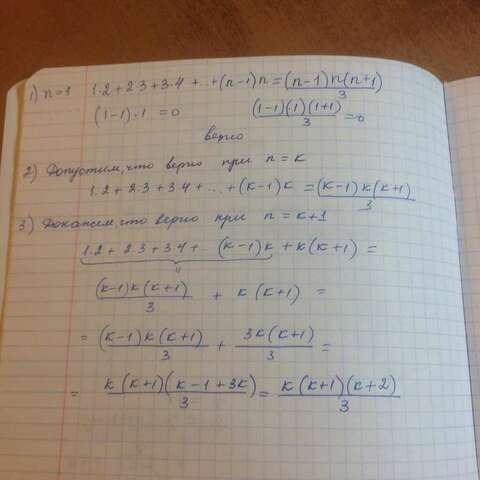 1) n=1 1·2+2·3+3·4+...+(n-1)n=(n-1)n(n+1)/3
(1-1)·1=0 (1-1)(1)(1+1)/3=0
верно
2) Допустим, что верно при n=k
1·2+2·3+3·4+...+(k-1)k=(k-1)k(k+1)/3
3) Докажем, что верно при n=k+1
1·2+2·3+3·4+...(k-1)k+k(k+1)=
"
(k-1)k(k+1)/3+k(k+1)=
=(k-1)k(k+1)/3+3k(k+1)/3=
=k(k+1)(k-1+3k)/3=k(k+1)(k+2)/3